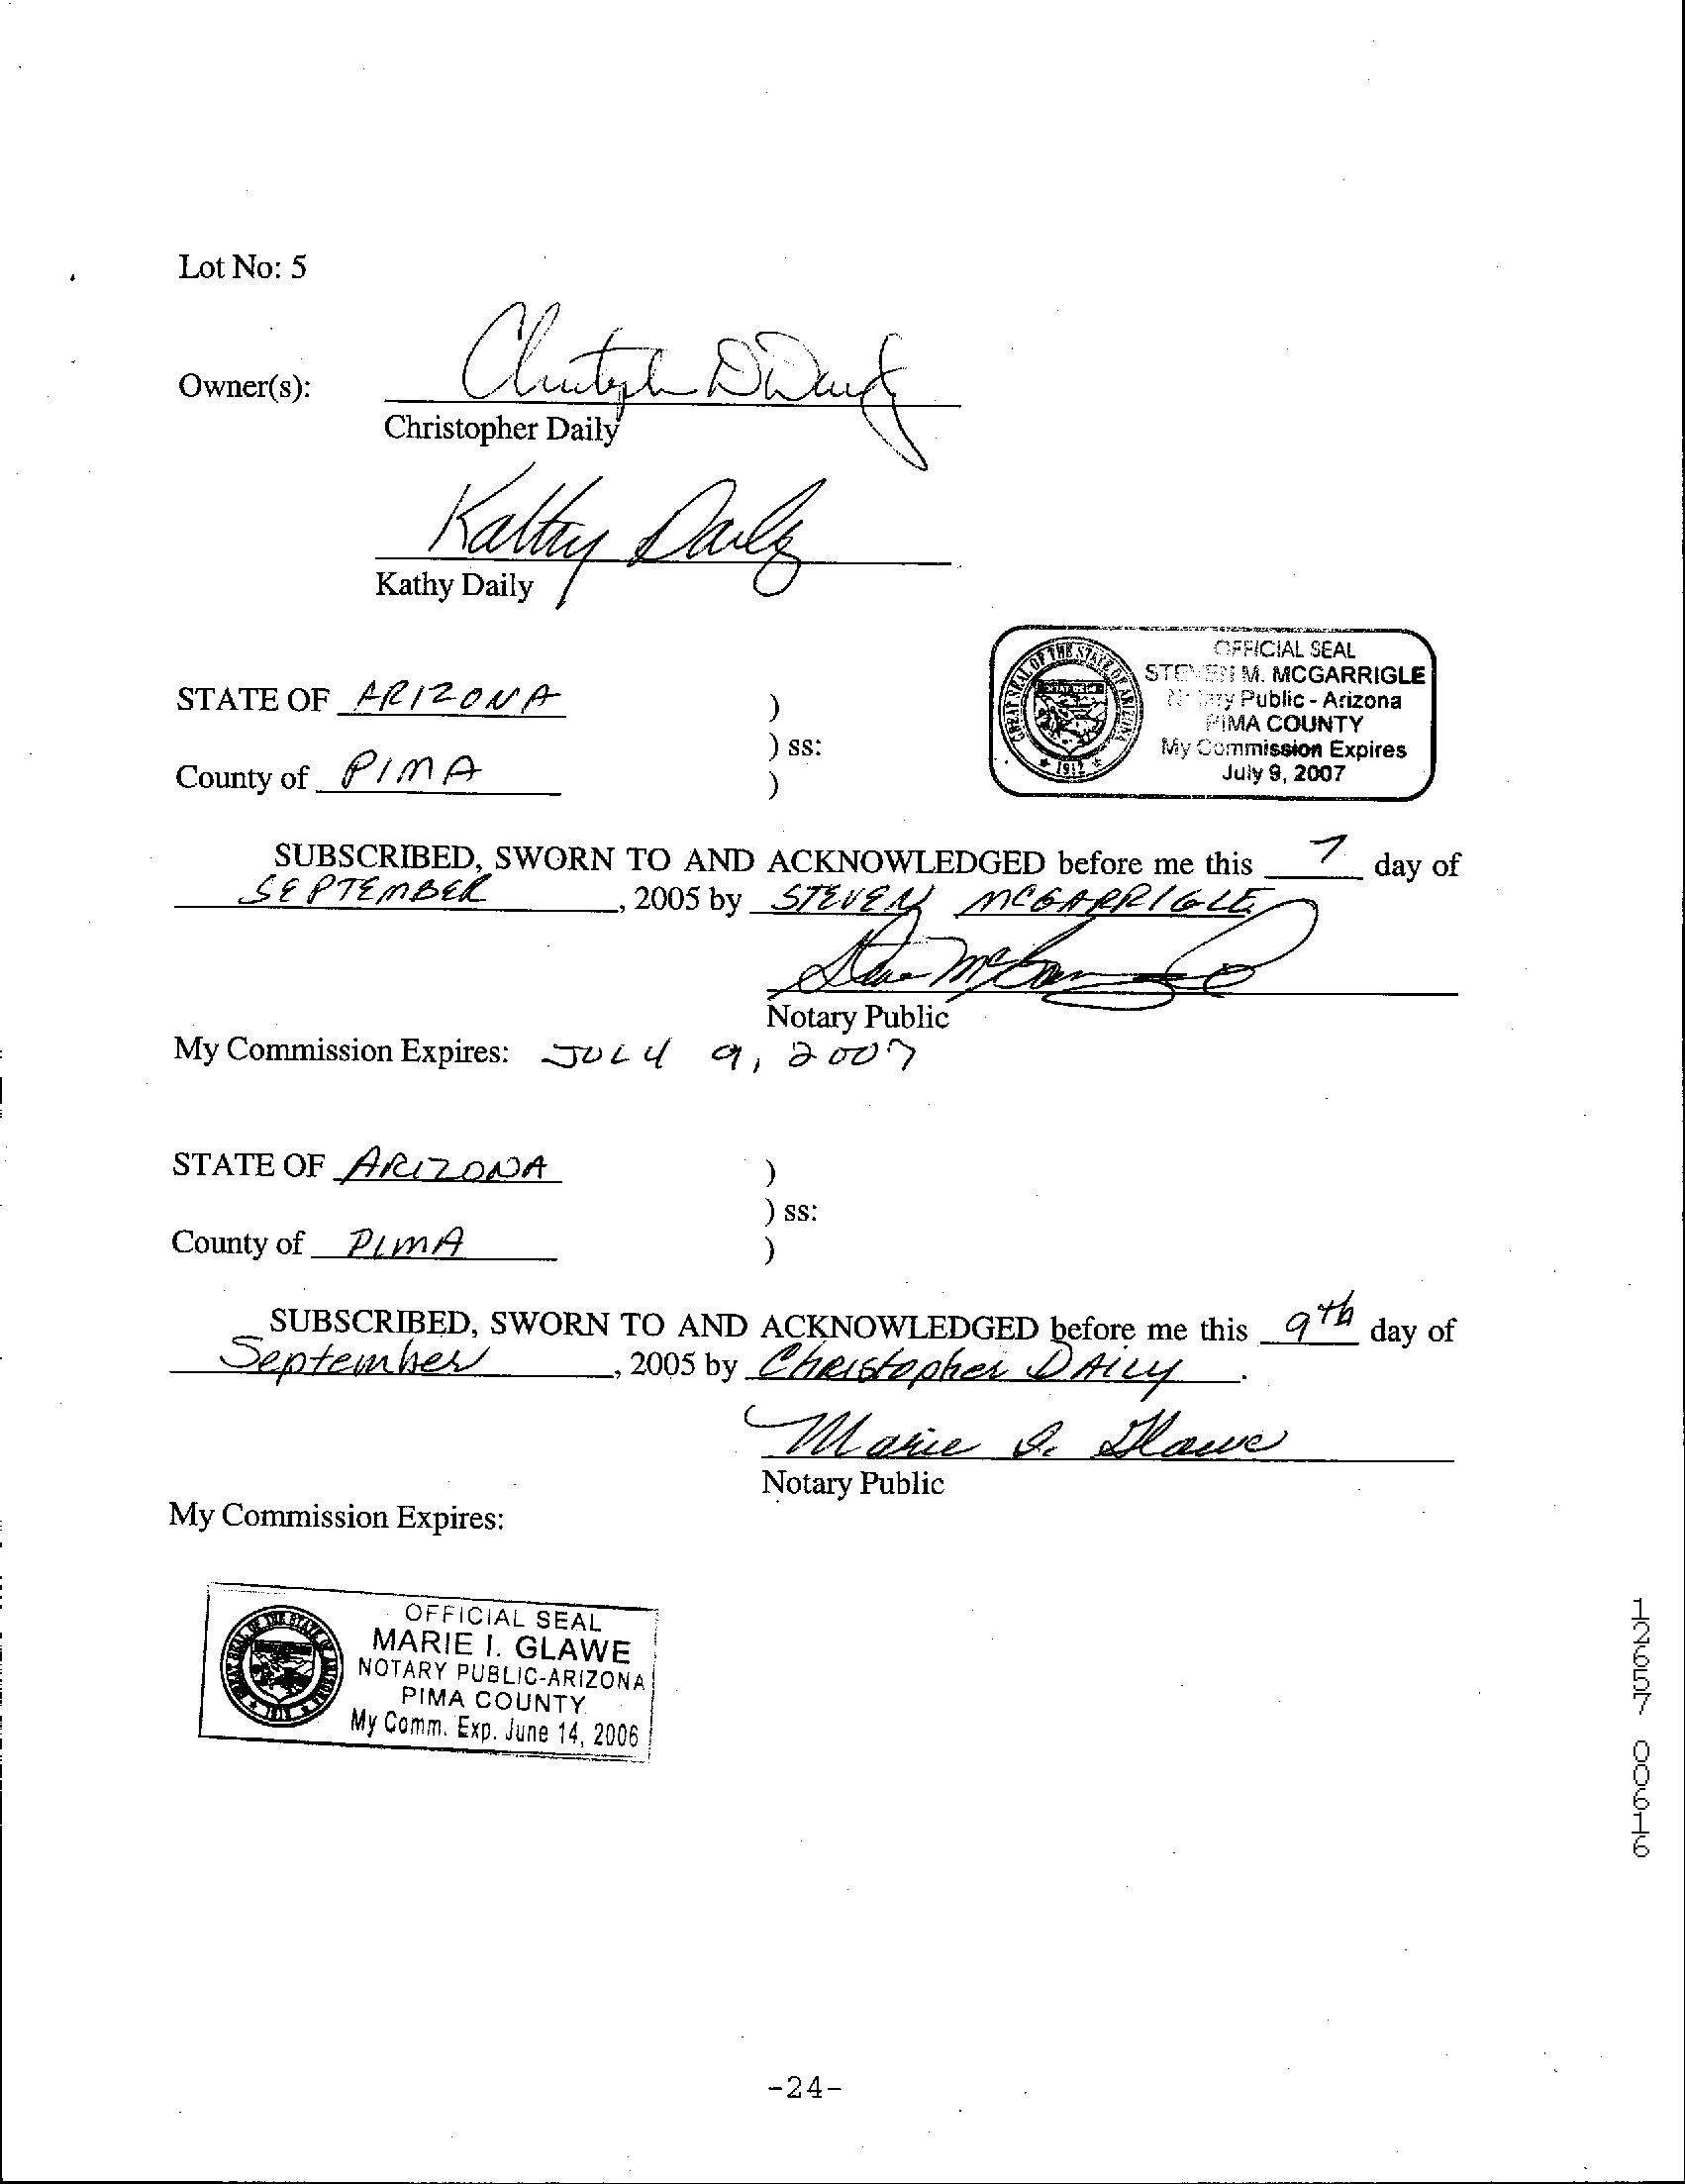 Lot No: 5
Christopher D Daily
Owner(s):
Christopher Daily
Kathy Daily
Kathy Daily
OFFICIAL SEAL
STEVEN M. MCGARRIGLE
Notary Public - Arizona
PIMA COUNTY
My Commission Expires
July 9, 2007
GREAT SEAL OF THE STATE OF ARIZONA
1912
STATE OF ARIZONA )
) ss:
County of PIMA )
SUBSCRIBED, SWORN TO AND ACKNOWLEDGED before me this 7 day of
SEPTEMBER, 2005 by STEVEN MCGARRIGLE
Notary Public
My Commission Expires: JULY 9, 2007
STATE OF ARIZONA )
) ss:
County of PIMA )
SUBSCRIBED, SWORN TO AND ACKNOWLEDGED before me this 9th day of
September, 2005 by Christopher DAILY.
Marie I. Glawe
Notary Public
My Commission Expires:
OFFICIAL SEAL
MARIE I. GLAWE
NOTARY PUBLIC-ARIZONA
PIMA COUNTY
My Comm. Exp. June 14, 2006
GREAT SEAL OF THE STATE OF ARIZONA
1912
12657 00616
-24-